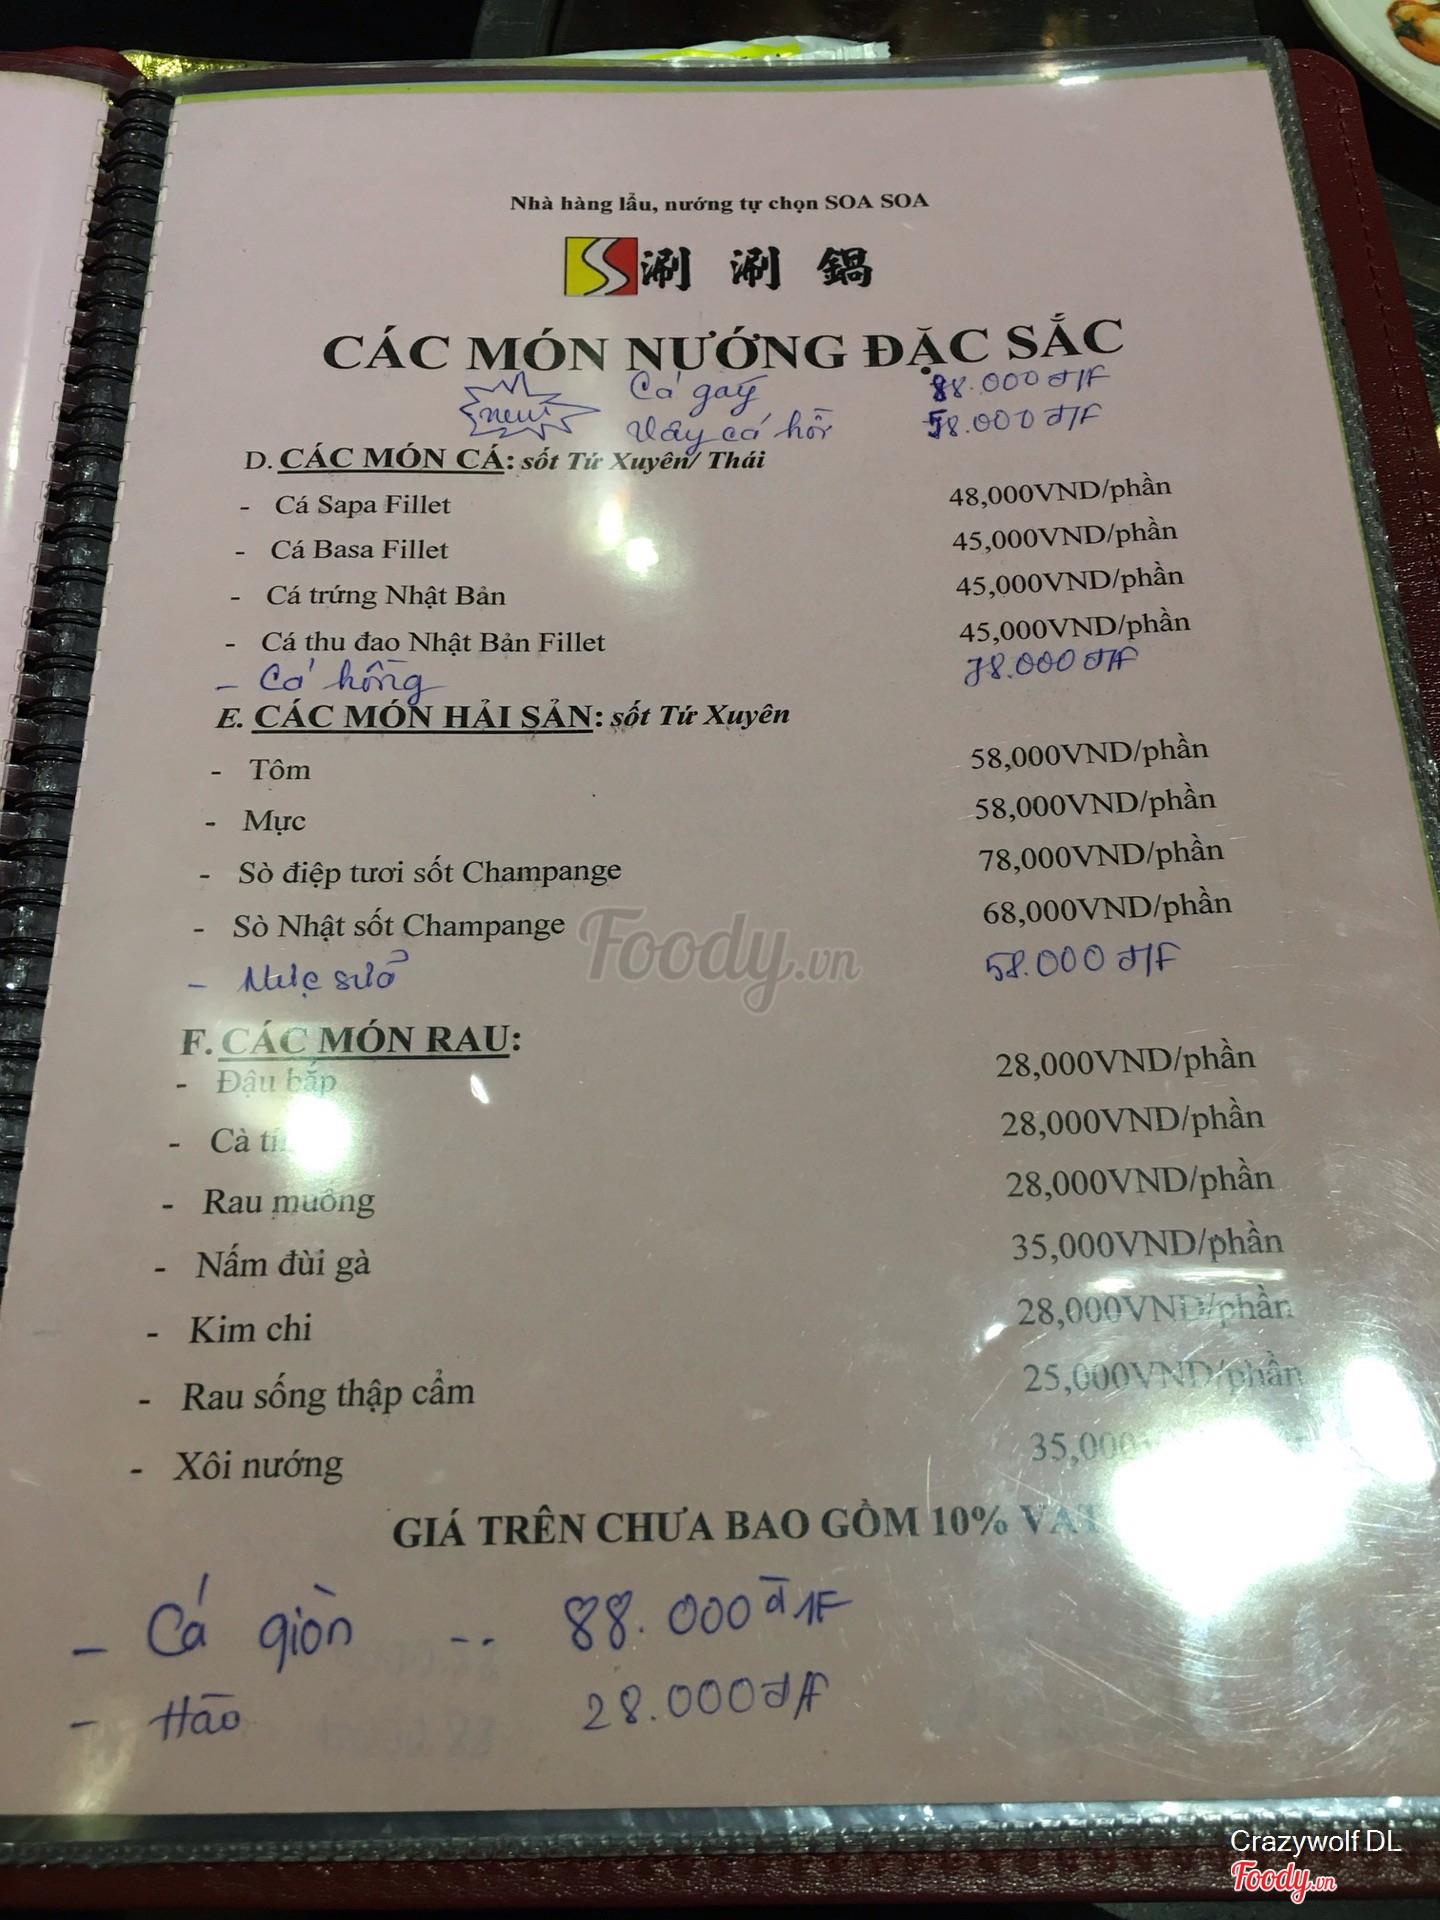 Nhà hàng lẩu, nướng tự chọn SOA SOA
S 涮 涮 鍋
CÁC MÓN NƯỚNG ĐẶC SẮC
new Cá gáy 88.000 đ/F
Vây cá hồi 58.000 đ/F
D. CÁC MÓN CÁ: sốt Tứ Xuyên/ Thái
- Cá Sapa Fillet 48,000VND/phần
- Cá Basa Fillet 45,000VND/phần
- Cá trứng Nhật Bản 45,000VND/phần
- Cá thu đao Nhật Bản Fillet 45,000VND/phần
- Cá hồng 78.000 đ/F
E. CÁC MÓN HẢI SẢN: sốt Tứ Xuyên
- Tôm 58,000VND/phần
- Mực 58,000VND/phần
- Sò điệp tươi sốt Champange 78,000VND/phần
- Sò Nhật sốt Champange 68,000VND/phần
- Mực sữa 58.000 đ/F
Foody.vn
F. CÁC MÓN RAU:
- Đậu bắp 28,000VND/phần
- Cà 28,000VND/phần
- Rau muống 28,000VND/phần
- Nấm đùi gà 35,000VND/phần
- Kim chi 28,000VND/phần
- Rau sống thập cẩm 25,000VND/phần
- Xôi nướng 35,000
GIÁ TRÊN CHƯA BAO GỒM 10% VAT
- Cá giòn -- 88.000 đ/F
- Hào 28.000 đ/F
Crazywolf DL
Foody.vn